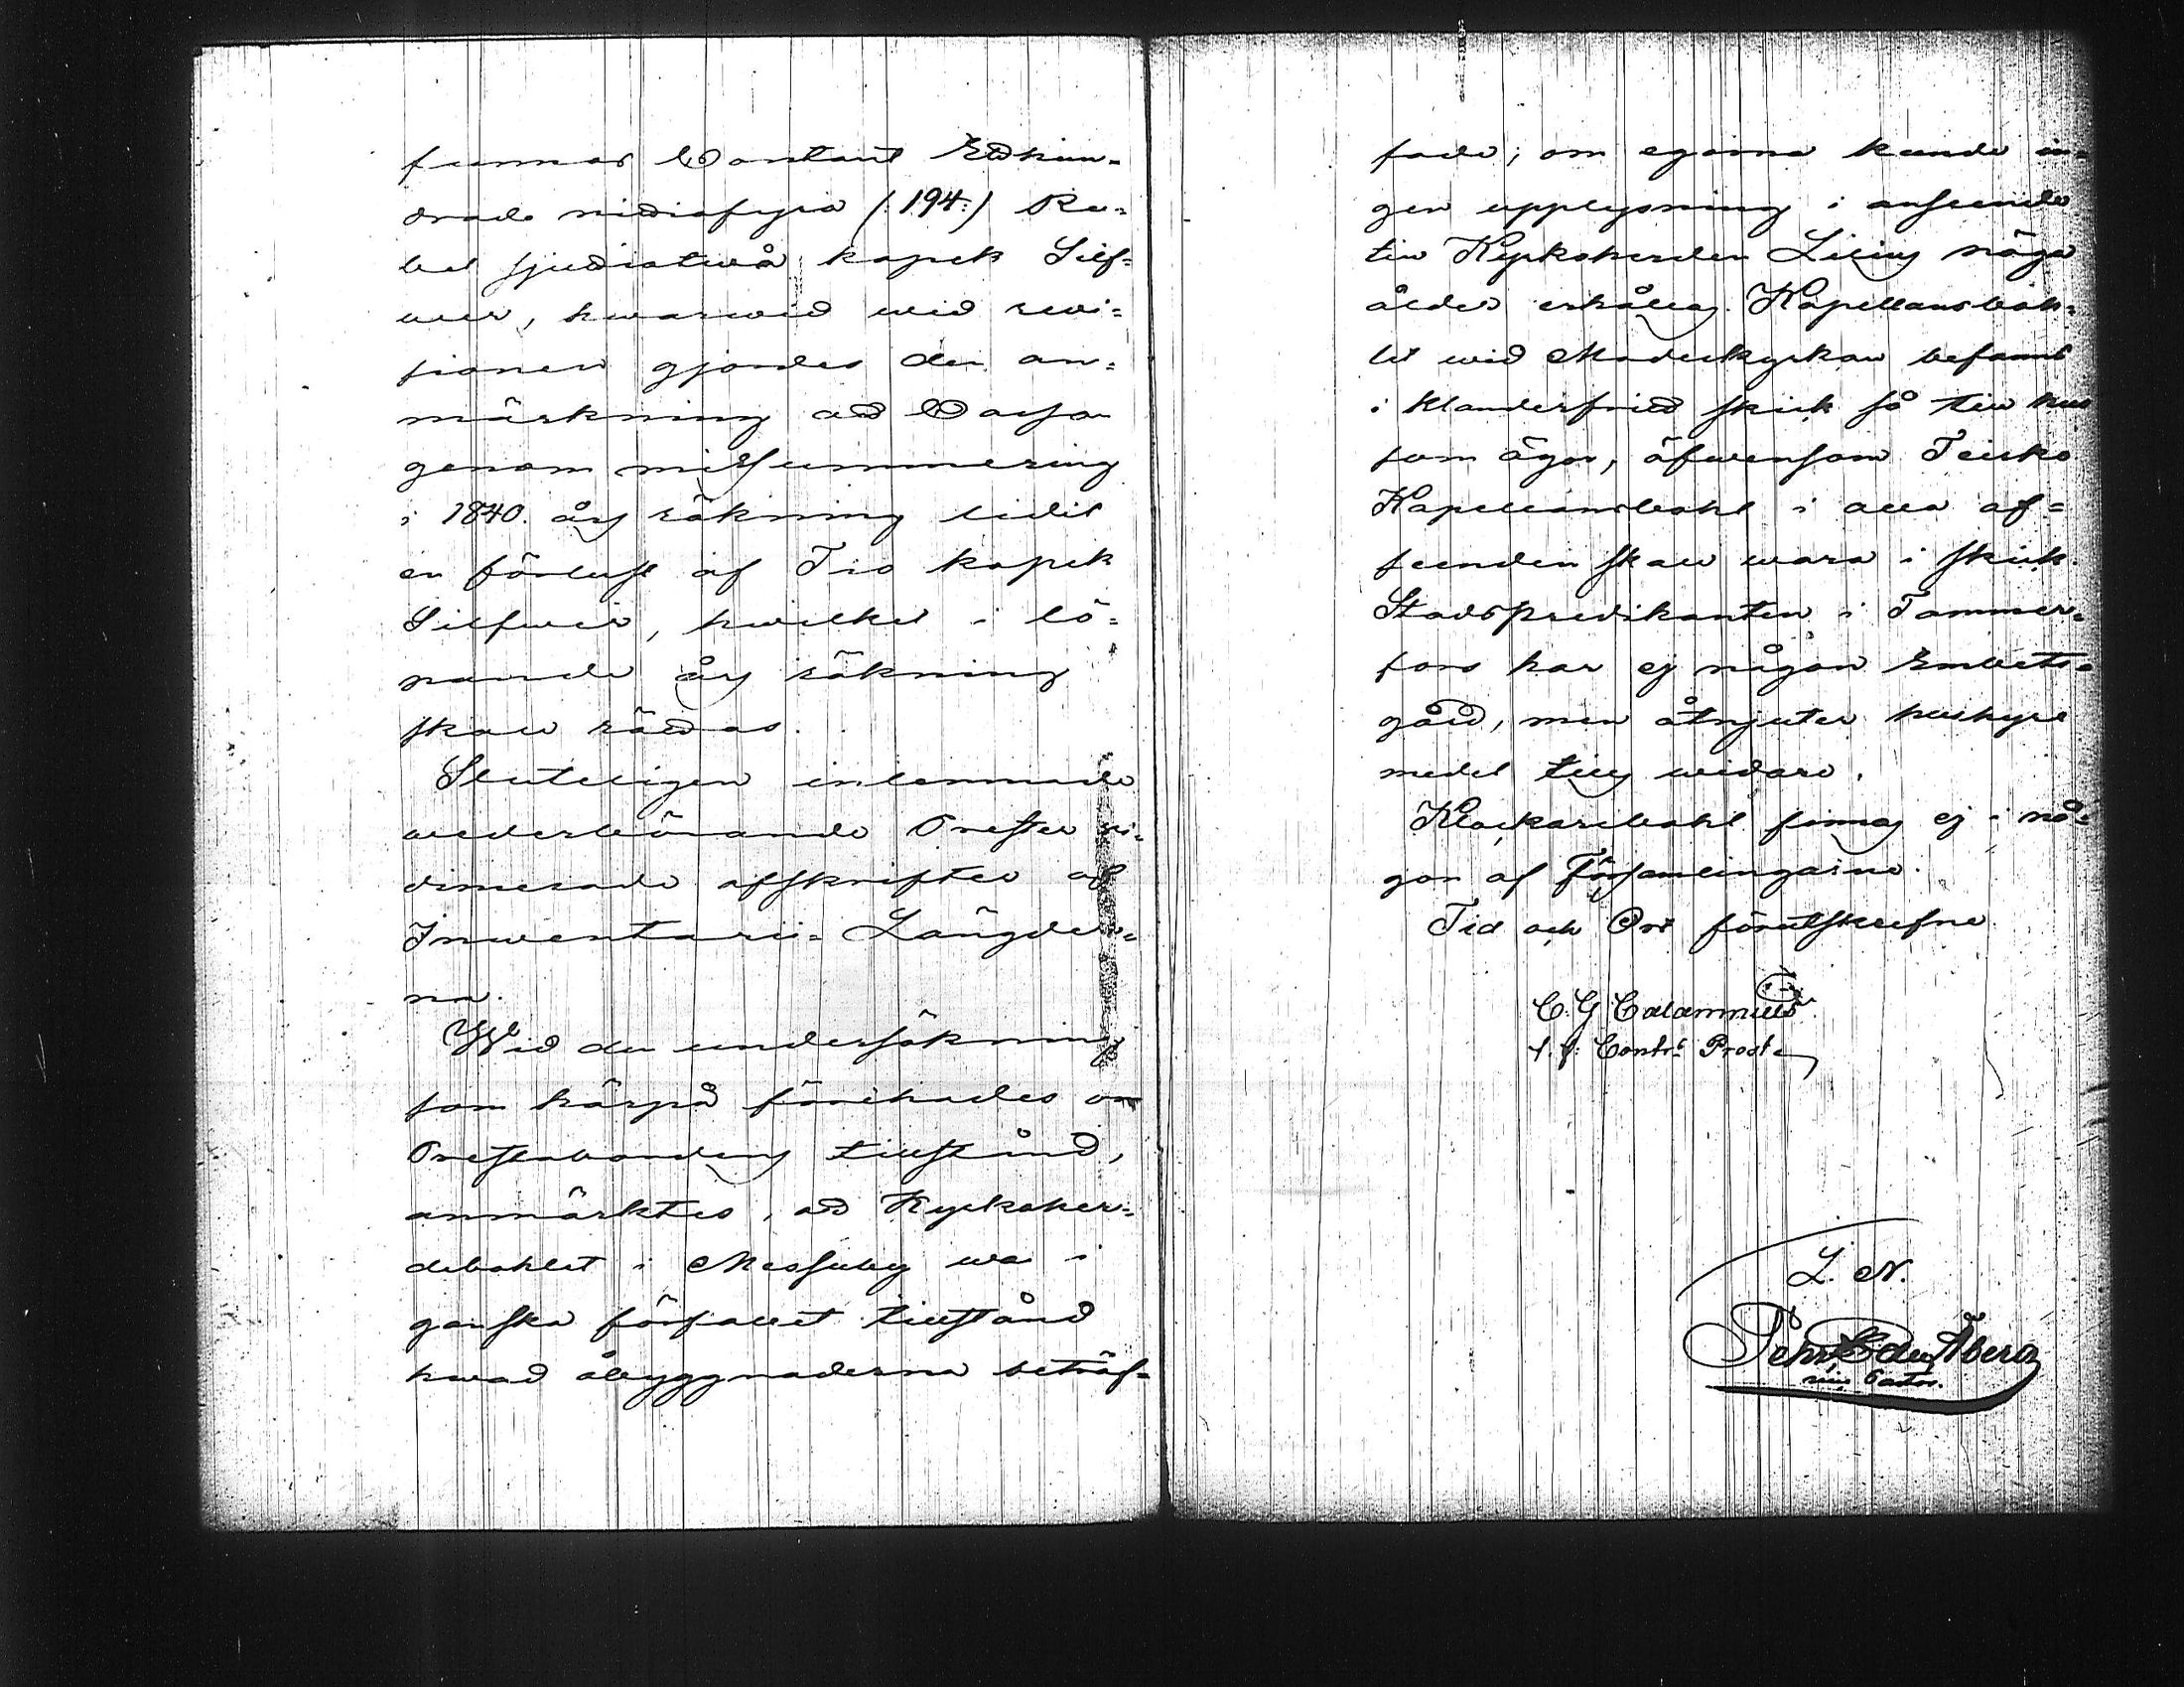 funnos Contant Etthun-
drade nittiofyra (:194:) Ru-
bel sjuttiotwå kopek Silf-
wer, hwarwid wid revi-
sionen gjordes den an-
märkning att Cassan
genom missummering
i 1840. års räkning lidit
en förlust af Tio kopek
Silfwer, hwilket i lö-
pande års räkning
skall rättas.
Sluteligen inlemnade
wederbörande Prester vi-
dimerade afskrifter af
Inwentarii-Längder-
na.
Wid den undersökning
som härpå förehades om
Prestabordens tillstånd,
anmärktes, att Kyrkoher-
debohlet i Messuby war i
ganska förfallet tillstånd
hwad åbyggnaderna beträf-
fade; om egorna kunde in-
gen upplysning i anseende
till Kyrkoherden Lilius höga
ålder erhållas. Kapellansboh-
let wid Moderkyrkan befanns
i klanderfritt skick så till hus
som ägor, äfwensom Teisko
Kapellansbohl i alla af-
seenden skall wara i skick.
Stadspredikanten i Tammer-
fors har ej någon Embets-
gård, men åtnjuter hushyre
medel tills widare.
Klockarebohl finnas ej i nå-
gon af Församlingarne.
Tid och Ort förutskrefne
C. G. Calamnius
t. f. Contr. Prost
L. N.
Pehr Åberg